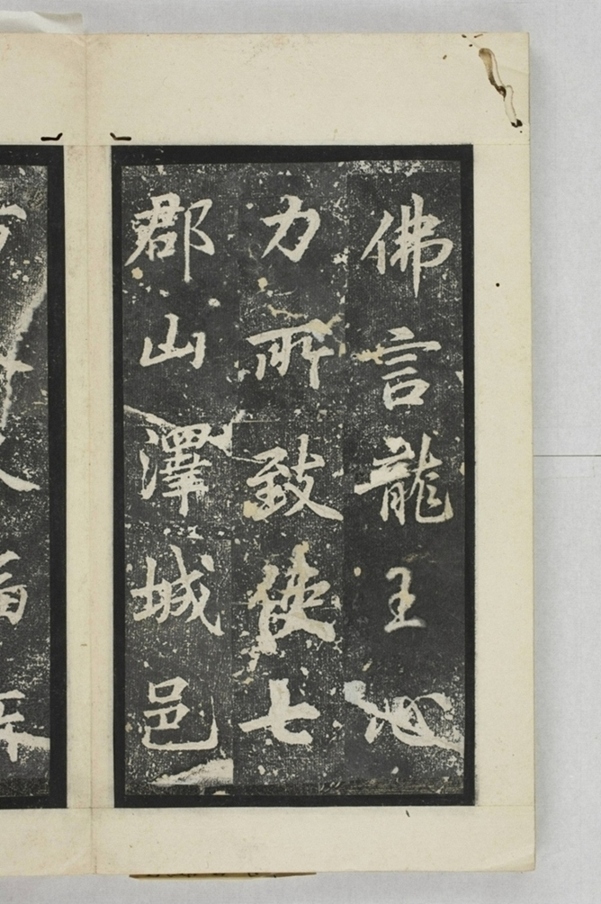 佛言龍王心
力所致使七
郡山澤城邑